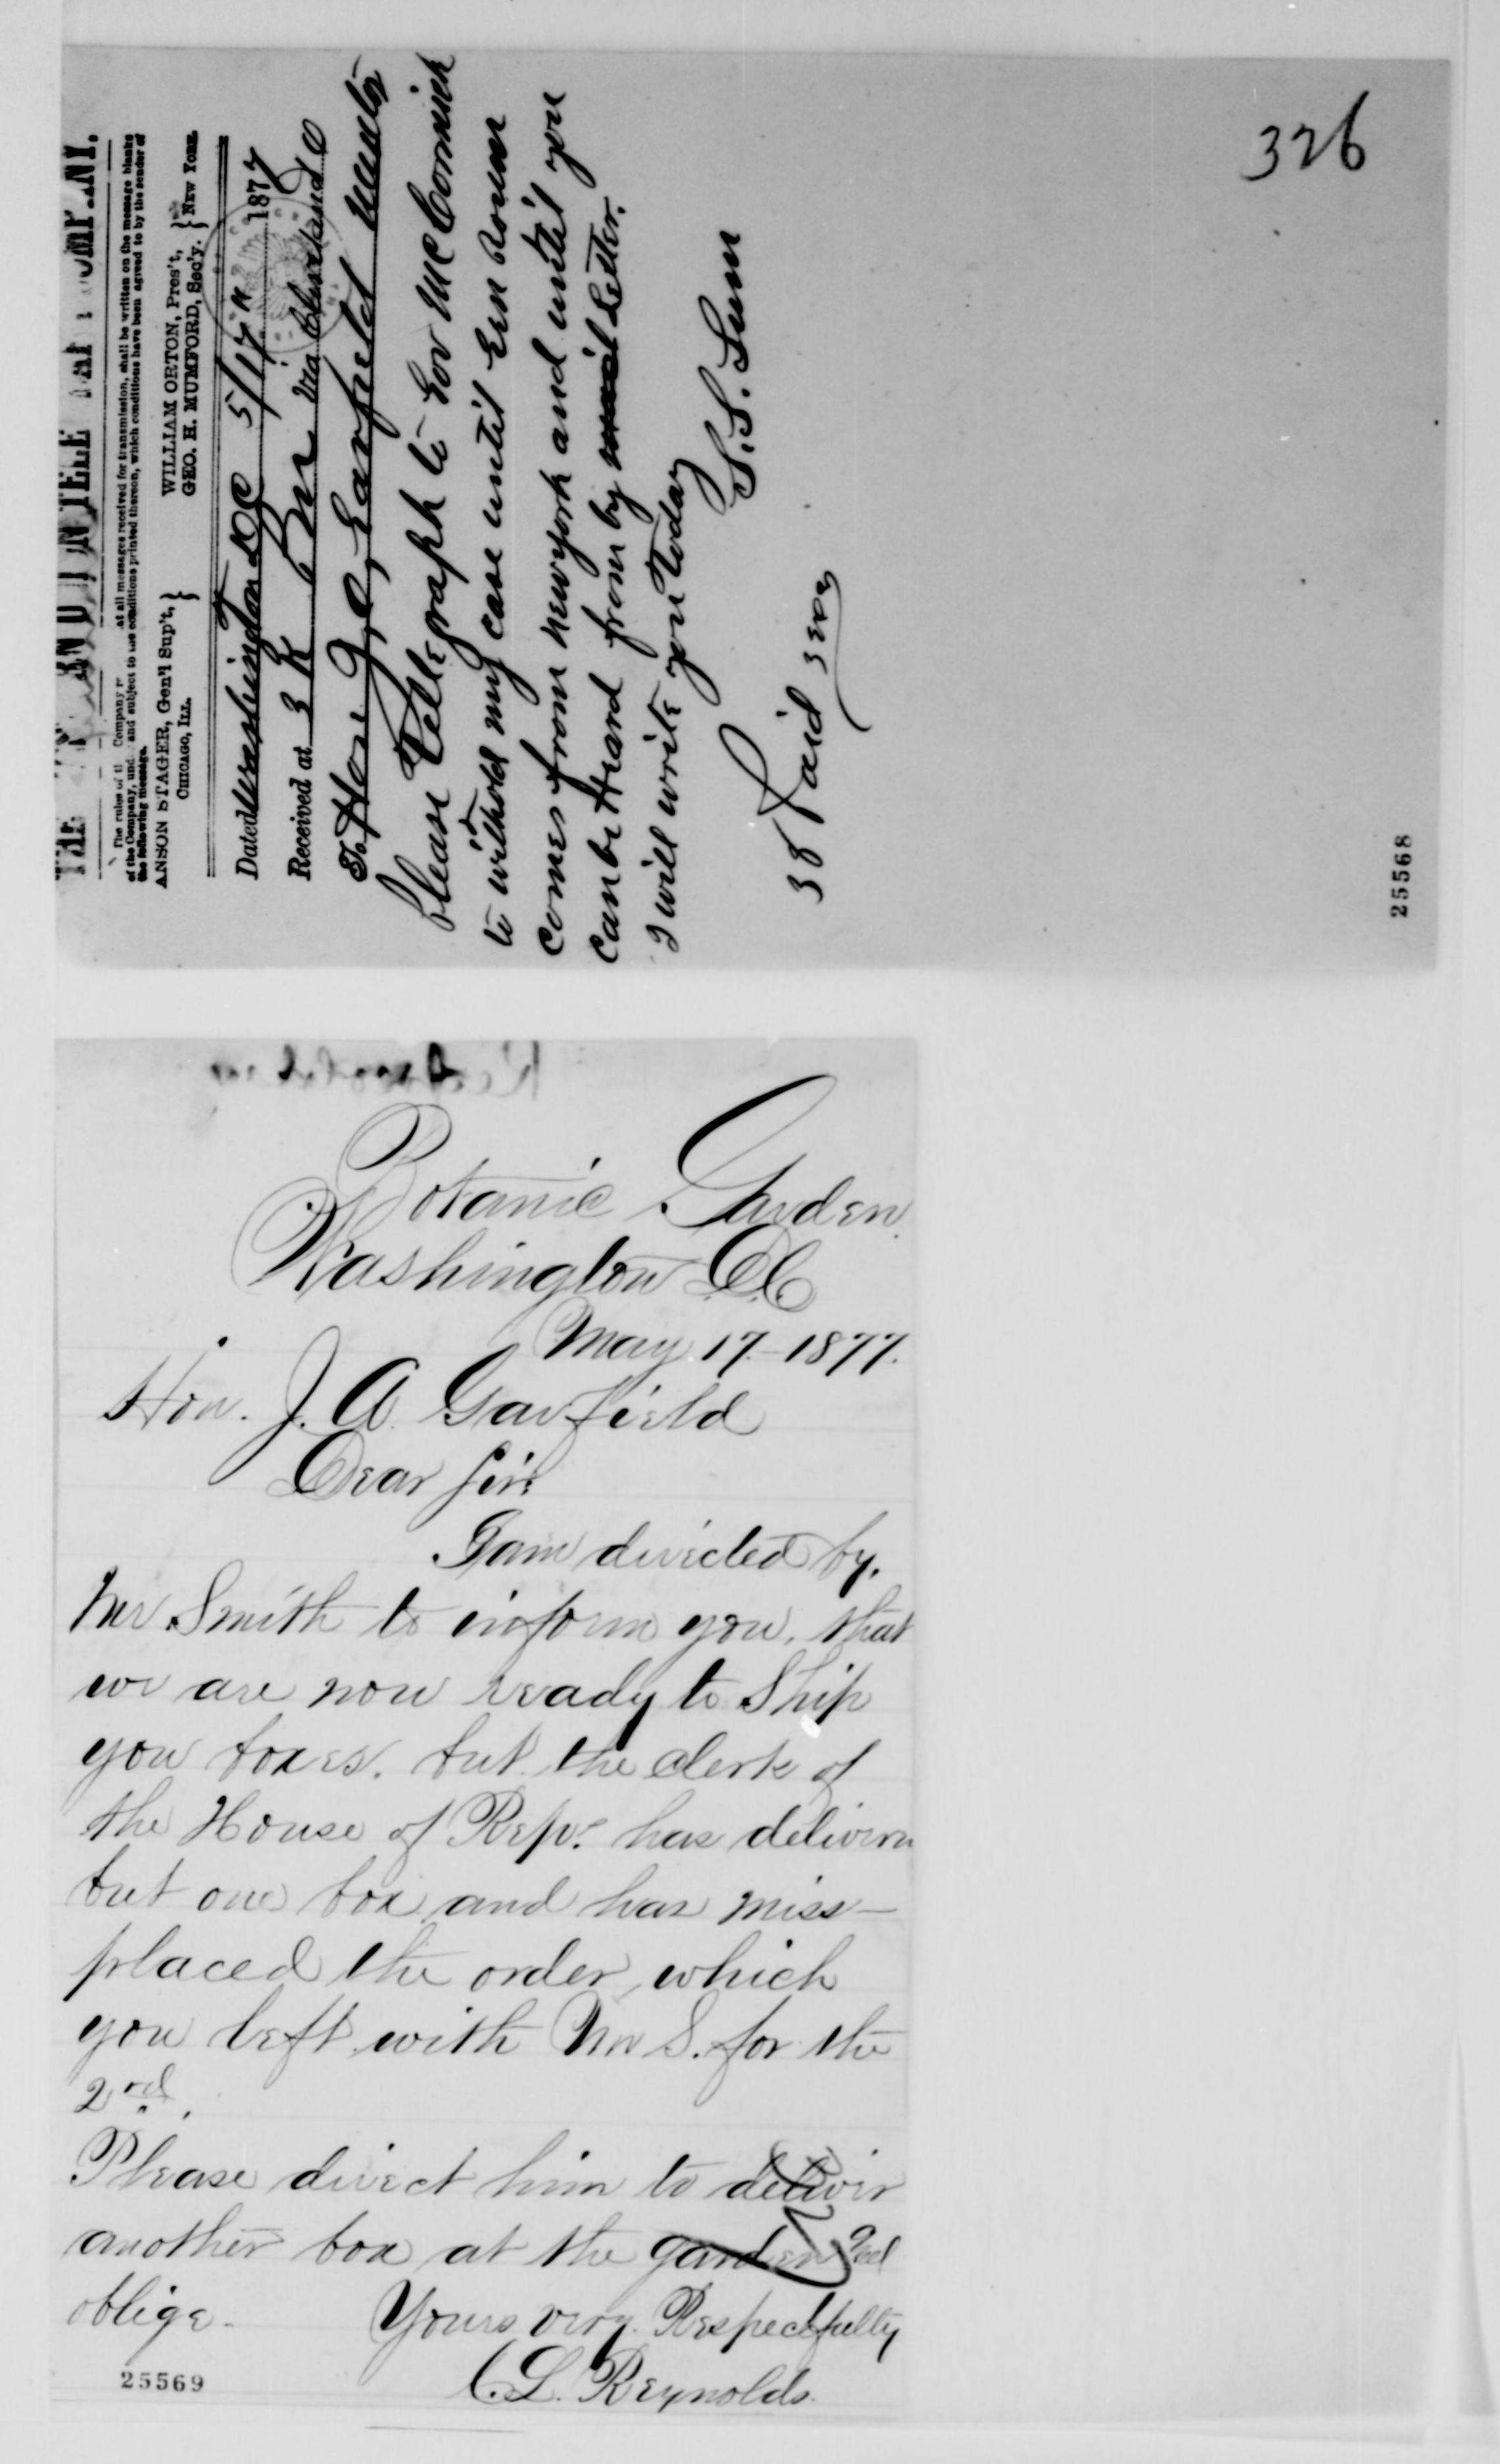 326
THE
The rules of Company r At all messages received for transmission, shall be written on the message blanks
of the Company, und and subject to the conditions printed thereon, which conditions have been agreed to by the sender of
the following message.
ANSON STAGER, Gen'l Sup't, } WILLIAM ORTON, Pres't, }
CHICAGO, ILL. GEO. H. MUMFORD, Sec'y. } NEW YORK.
Dated Washington DC 5/17 1877
Received at 3 K Via Cleveland O
To Hon J. A. Garfield Mentor
Please Telegraph to Gov McCormick
to withold my case until Gen
comes from Newyork and until you
can be Heard from by mail Letter.
I will write you Today
S. S.
38 Paid
25568
Botanic Garden.
Washington D.C.
May 17.- 1877.
Hon. J. A. Garfield
Dear Sir:
I am directed by.
Mr Smith to inform you, that
we are now ready to Ship
you boxes. but the clerk of
the House of Reps. has delivern
but one box and has miss-
placed the order, which
you left with Mr S. for the
2nd.
Please direct him to deliver
another box at the garden and
oblige. Yours very Respectfully
C. L. Reynolds.
25569